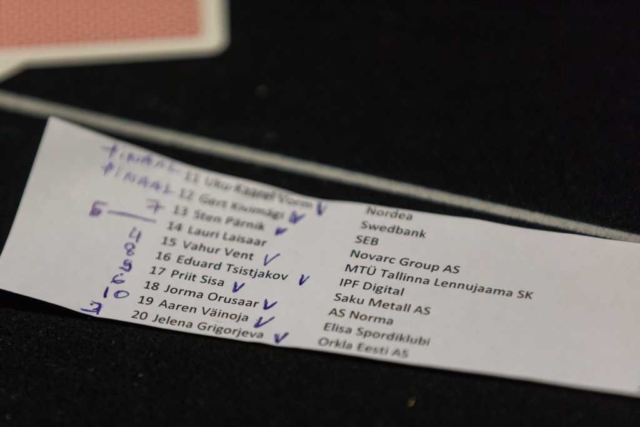 FINAAL 11 Nordea
FINAAL 12 Gert Kivimägi ✓ Swedbank
7 13 Sten Pärnik ✓ SEB
14 Lauri Laisaar Novarc Group AS
4 15 Vahur Vent ✓ MTÜ Tallinna Lennujaama SK
8 16 Eduard Tsistjakov ✓ IPF Digital
17 Priit Sisa ✓ Saku Metall AS
6 18 Jorma Orusaar ✓ AS Norma
10 19 Aaren Väinoja ✓ Elisa Spordiklubi
20 Jelena Grigorjeva ✓ Orkla Eesti AS